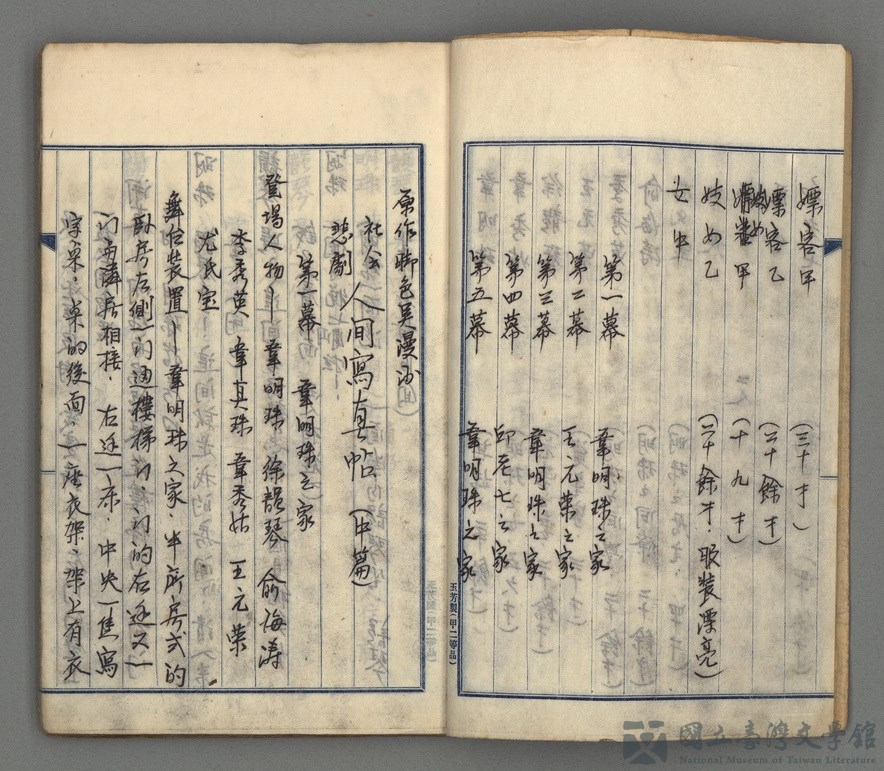 嫖客甲 (三十才)
嫖客乙 (二十餘才)
妓女甲 (十九才)
妓女乙 (二十餘才．服裝漂亮)
女中
第一幕 韋明珠之家
第二幕 王元榮之家
第三幕 韋明珠之家
第四幕 邱老七之家
第五幕 韋明珠之家
玉芳製(甲二等品)
原作脚色吳漫沙
社会悲劇 人间寫真帖 (中篇)
第一幕 韋明珠之家
登場人物— 韋明珠 徐韻琴 俞海濤
李秀英 韋真珠 韋秀姑 王元榮
尤氏宝
舞台裝置— 韋明珠之家．半新房式的
臥房左側一门通樓梯门．门的右边又一
门与隣居相接．右边一床．中央一隻寫
字桌．桌的後面．一座衣架．架上有衣
國立臺灣文學館
National Museum of Taiwan Literature